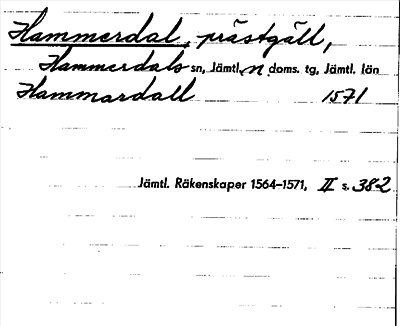 Hammerdal, prästgäll,
Hammerdals sn, Jämtl. n. doms. tg, Jämtl. län
Hammardall 1571
Jämtl. Räkenskaper 1564–1571, II s. 382